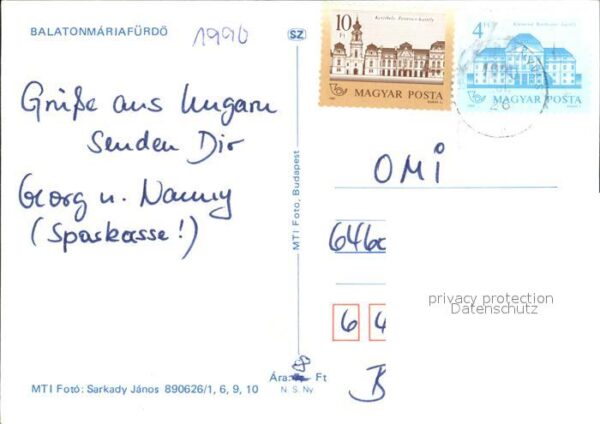 BALATONMÁRIAFÜRDŐ
1990
SZ
10 Ft
MAGYAR POSTA
4 Ft
MAGYAR POSTA
Grüße aus Ungarn
senden Dir
Georg u. Nanny
(Sparkasse!)
MTI Foto, Budapest
OMi
646
privacy protection
Datenschutz
6 4
B
MTI Fotó: Sarkady János 890626/1, 6, 9, 10
Ára: Ft
N. S. Ny